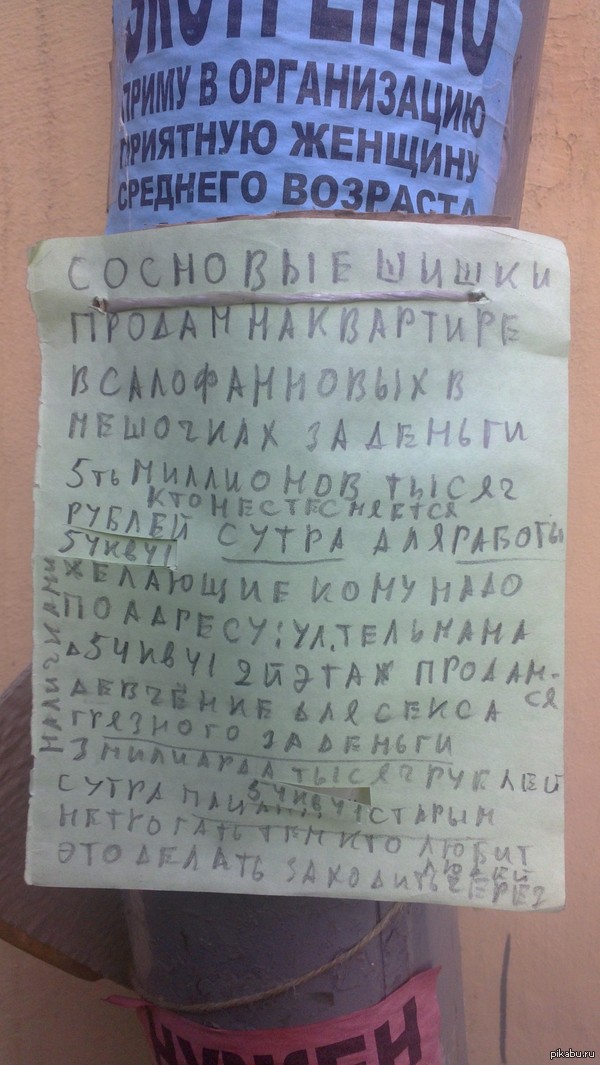 ЭКСТРЕННО
ПРИМУ В ОРГАНИЗАЦИЮ
ПРИЯТНУЮ ЖЕНЩИНУ
СРЕДНЕГО ВОЗРАСТА
СОСНОВЫЕ ШИШКИ
ПРОДАМ НА КВАРТИРЕ
В САЛОФАННОВЫХ В
МЕШОЧКАХ ЗА ДЕНЬГИ
5ТЬ МИЛЛИОНОВ ТЫСЯЧ
КТО НЕ СТЕСНЯЕТСЯ
РУБЛЕЙ СУТРА ДЛЯ РАБОТЫ
54КВЧ1
ЖЕЛАЮЩИЕ КОМУ НАДО
ПО АДРЕСУ: УЛ. ТЕЛЬМАНА
Д54КВЧ1 2Й ЭТАЖ ПРОДАМ-
СЯ
ДЕВЧЁНКЕ ДЛЯ СЕКСА
ГРЯЗНОГО ЗА ДЕНЬГИ
3 МИЛИАРДА ТЫСЯЧ РУБЛЕЙ
54КВЧ1
СУТРА СТАРЫМ
НЕ ТРОГАТЬ ТЕМ КТО ЛЮБИТ
ЛЮДЕЙ
ЭТО ДЕЛАТЬ ЗАХОДИТЬ ЧЕРЕЗ
НАЛИЧКАМИ
НУЖЕН
pikabu.ru